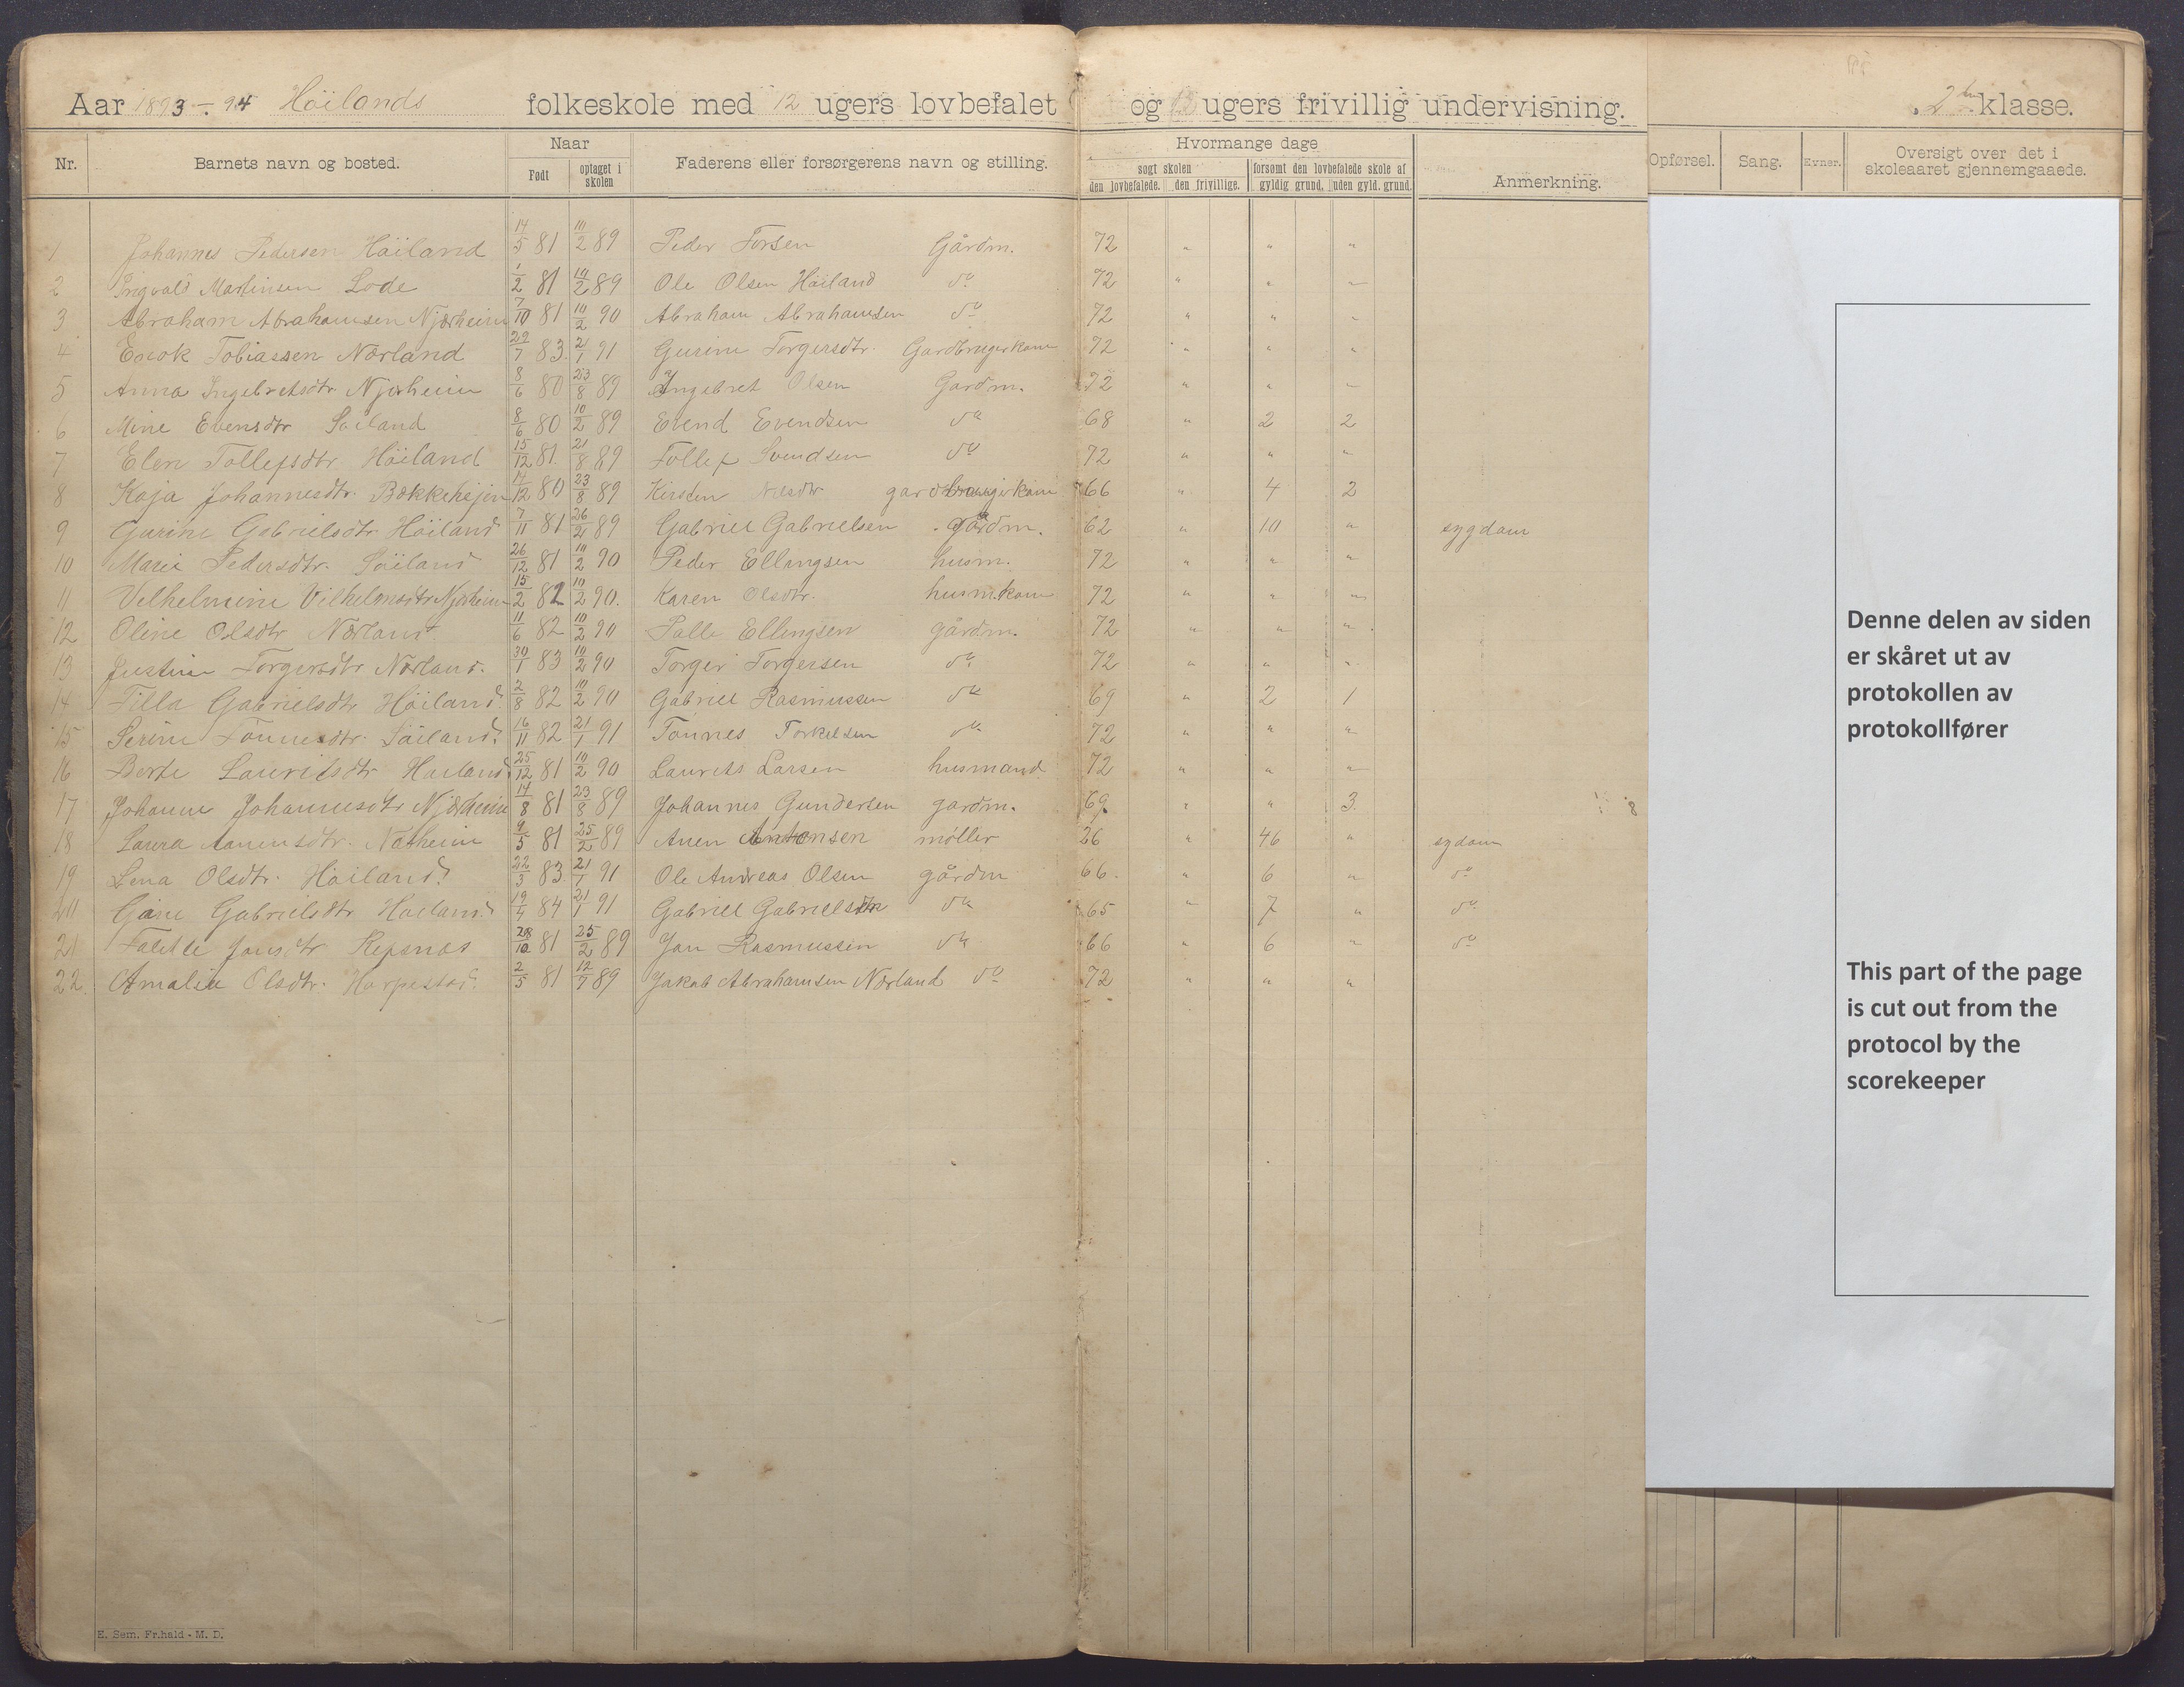 Aar 1893-94 Höilands folkeskole med 12 ugers lovbefalet og ugers frivillig undervisning. 2den klasse.
Nr. Barnets navn og bosted. Naar Født optaget i skolen Faderens eller forsørgerens navn og stilling. Hvormange dage søgt skolen den lovbefalede. den frivillige. forsømt den lovbefalede skole af gyldig grund. uden gyld. grund. Anmerkning. Opførsel. Sang. Evner. Oversigt over det i skoleaaret gjennemgaaede.
1 Johannes Pedersen Höiland 14/5 81 10/2 89 Peder Gårdm. 72 " " "
2 Martinsen Lode 1/2 81 10/2 89 Ole Olsen Höiland do 72 " " "
3 Abraham Abrahamsen Njærheim 7/10 81 10/2 90 Abraham Abrahamsen do 72 " " "
4 Enok Tobiassen Nærland 29/7 83 21/1 91 Gurine Torgersdtr. Gardbrugerkone 72 " " "
5 Anna Ingebretsdtr Njærheim 8/6 80 23/8 89 Ingebret Olsen Gardm. 72 " " "
6 Mine Evensdtr Söiland 8/6 80 10/2 89 Evend Evendsen do 68 " 2 2
7 Elen Tollefsdtr. Höiland 15/12 81 21/8 89 Tollef Svendsen do 72 " " "
8 Kaja Johannesdtr. Bækkehejen 14/12 80 23/8 89 Kirsten Nilsdtr gardbrugerkone 66 " 4 2
9 Gurine Gabrielsdtr Höiland 7/11 81 26/2 89 Gabriel Gabrielsen gårdm. 62 " 10 " sygdom
10 Marie Pedersdtr. Söiland 26/12 81 10/2 90 Peder Ellingsen husm. 72 " " "
11 Vilhelmine Vilhelmsdtr Njærheim 15/2 82 10/2 90. Karen Olsdtr. husm.kone 72 " " "
12 Oline Olsdtr Nærland. 11/6 82 10/2 90 Ellingsen gårdm. 72 " " "
13 Justine Torgersdtr Nærland. 30/1 83 10/2 90 Torger Torgersen do 72 " " "
14 Tilla Gabrielsdtr Höiland 2/8 82 10/2 90 Gabriel Rasmussen do 69 " 2 1
15 Serine Tönnesdtr. Söiland 16/11 82 21/1 91 Tönnes Torkelsen do 72 " " "
16 Berte Lauritsdtr Höiland 25/12 81 10/2 90 Laurits Larsen husmand 72 " " "
17 Johanne Johannesdtr Njærheim 14/8 81 23/8 89 Johannes Gundersen gardm. 69 " " 3
18 Laura Aanensdtr. Nætheim 9/5 81 25/2 89 Anen Antonsen møller 26 " 46 " sydom
19 Lena Olsdtr. Höiland 22/3 83 21/1 91 Ole Andreas Olsen gårdm 66 " 6 " do
20 Gabrielsdtr Höiland 19/4 84 21/1 91 Gabriel Gabrielsen do 65 " 7 " do
21 Jansdtr Repsnes 28/10 81 25/2 89 Jan Rasmussen do 66 " 6 " do
22. Amalia Olsdtr. Harpestad 2/5 81 12/7 89 Jakob Abrahamsen Nærland do 72 " " "
Denne delen av siden
er skåret ut av
protokollen av
protokollfører
This part of the page
is cut out from the
protocol by the
scorekeeper
E. Sem. Fr.hald - M. D.